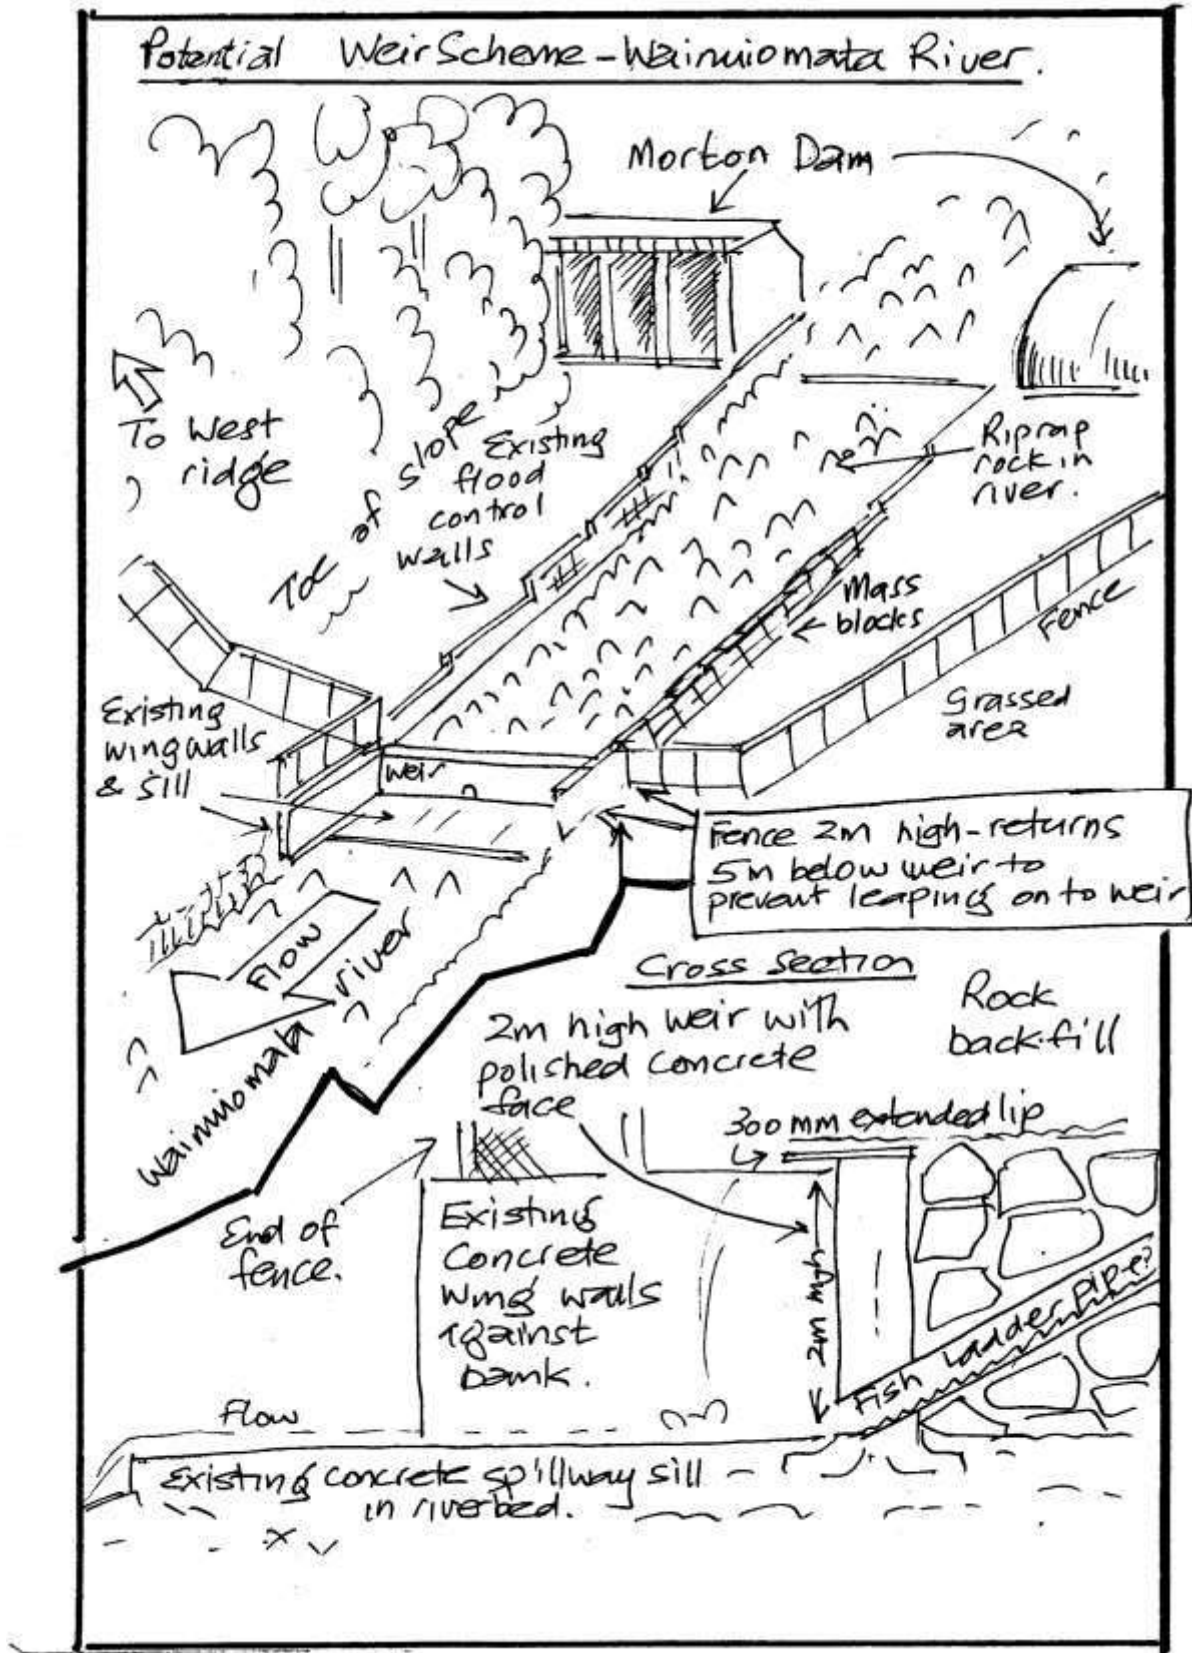 Potential Weir Scheme - Wainuiomata River.
Morton Dam
To West
ridge
Toe of slope
Existing
flood
control
walls
Riprap
rock in
river.
Mass
blocks
Fence
Grassed
area
Existing
wingwalls
& sill
Weir
Fence 2m high-returns
5m below weir to
prevent leaping on to weir
Flow
Wainuiomata river
Cross Section
2m high weir with
polished concrete
face
Rock
backfill
300mm extended lip
End of
fence.
Existing
Concrete
Wing walls
against
bank.
2m high
Fish Ladder pipe?
Flow
Existing concrete spillway sill
in riverbed.